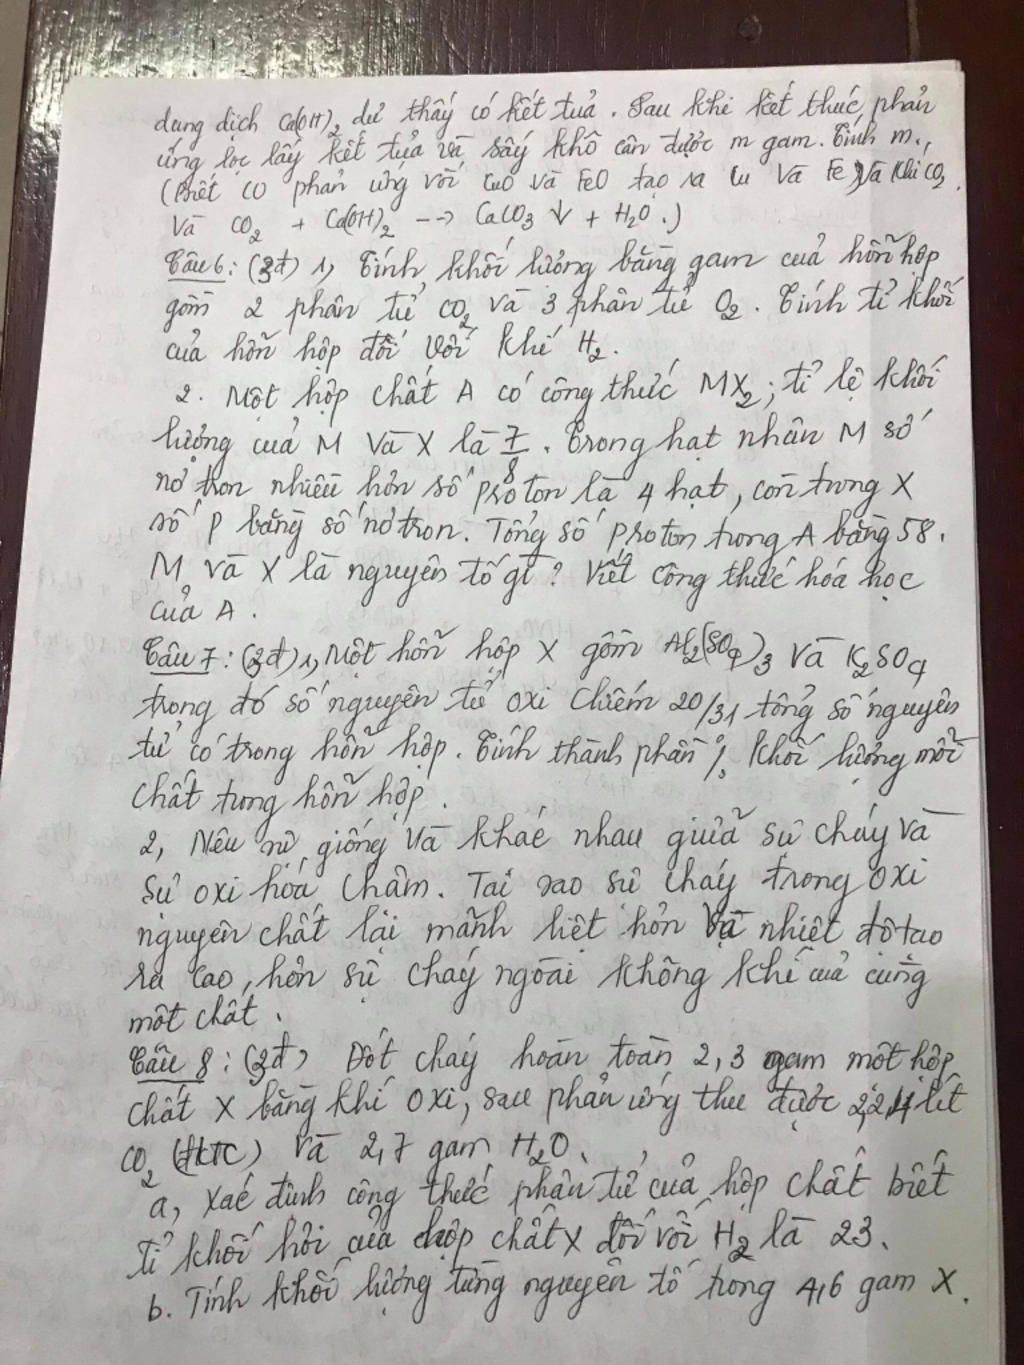 dung dịch Ca(OH)2 dư thấy có kết tủa. Sau khi kết thúc phản
ứng lọc lấy kết tủa và sấy khô cân được m gam. Tính m.
(Biết CO phản ứng với CuO và FeO tạo ra Cu và Fe) và khí CO2.
Và CO2 + Ca(OH)2 --> CaCO3 ↓ + H2O.)
Câu 6: (3đ) 1, Tính khối lượng bằng gam của hỗn hợp
gồm 2 phân tử CO2 và 3 phân tử O2. Tính tỉ khối
của hỗn hợp đối với khí H2.
2. Một hợp chất A có công thức MX2; tỉ lệ khối
lượng của M và X là 7/8. Trong hạt nhân M số
nơ tron nhiều hơn số proton là 4 hạt, còn trong X
số p bằng số nơ tron. Tổng số proton trong A bằng 58.
M và X là nguyên tố gì? Viết công thức hóa học
của A.
Câu 7: (3đ) 1, Một hỗn hợp X gồm Al2(SO4)3 và K2SO4
trong đó số nguyên tử oxi chiếm 20/31 tổng số nguyên
tử có trong hỗn hợp. Tính thành phần % khối lượng mỗi
chất trong hỗn hợp.
2, Nêu sự giống và khác nhau giữa sự cháy và
sự oxi hóa chậm. Tại sao sự cháy trong oxi
nguyên chất lại mãnh liệt hơn và nhiệt độ tạo
ra cao, hơn sự cháy ngoài không khí của cùng
một chất.
Câu 8: (3đ) Đốt cháy hoàn toàn 2,3 gam một hợp
chất X bằng khí oxi, sau phản ứng thu được 2,24 lít
CO2 (đktc) và 2,7 gam H2O.
a, Xác định công thức phân tử của hợp chất biết
tỉ khối hơi của hợp chất X đối với H2 là 23.
b. Tính khối lượng từng nguyên tố trong 4,6 gam X.